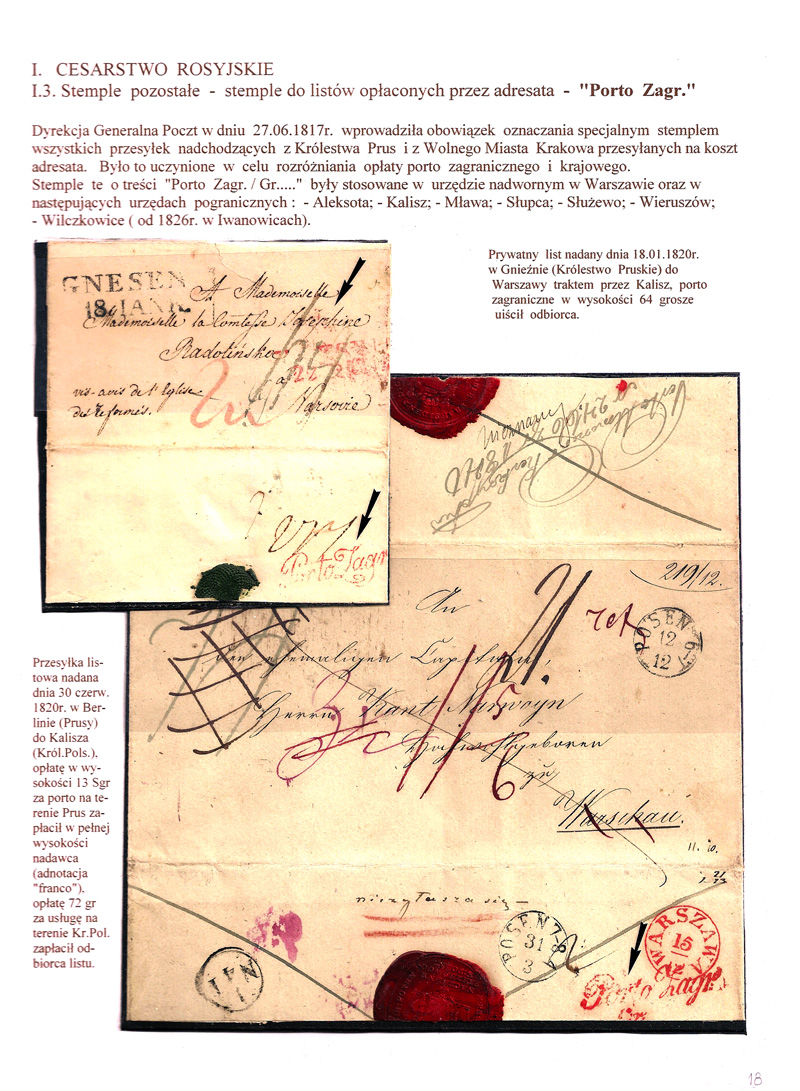 I. CESARSTWO ROSYJSKIE
I.3. Stemple pozostałe - stemple do listów opłaconych przez adresata - "Porto Zagr."
Dyrekcja Generalna Poczt w dniu 27.06.1817r. wprowadziła obowiązek oznaczania specjalnym stemplem
wszystkich przesyłek nadchodzących z Królestwa Prus i z Wolnego Miasta Krakowa przesyłanych na koszt
adresata. Było to uczynione w celu rozróżniania opłaty porto zagranicznego i krajowego.
Stemple te o treści "Porto Zagr. / Gr....." były stosowane w urzędzie nadwornym w Warszawie oraz w
następujących urzędach pogranicznych : - Aleksota; - Kalisz; - Mława; - Słupca; - Służewo; - Wieruszów;
- Wilczkowice ( od 1826r. w Iwanowicach).
Prywatny list nadany dnia 18.01.1820r.
w Gnieźnie (Królestwo Pruskie) do
Warszawy traktem przez Kalisz, porto
zagraniczne w wysokości 64 grosze
uiścił odbiorca.
GNESEN
18 IANR.
A Mademoiselle
Mademoiselle la Comtesse Josephine
Radolińska
a
Varsovie
vis-avis de l'Eglise
des Reformés.
Porto Zagr
219/12.
An
ret
POSEN
12
12
den ehemaligen
Herrn
Hochwohlgeboren
zu
Warschau.
11. 10.
Przesyłka lis-
towa nadana
dnia 30 czerw.
1820r. w Ber-
linie (Prusy)
do Kalisza
(Król.Pols.).
opłatę w wy-
sokości 13 Sgr
za porto na te-
renie Prus za-
płacił w pełnej
wysokości
nadawca
(adnotacja
"franco").
opłatę 72 gr
za usługę na
terenie Kr.Pol.
zapłacił od-
biorca listu.
niezgłasza się
POSEN
31
3
WARSZAWA
15
12
Porto Zagr.
18